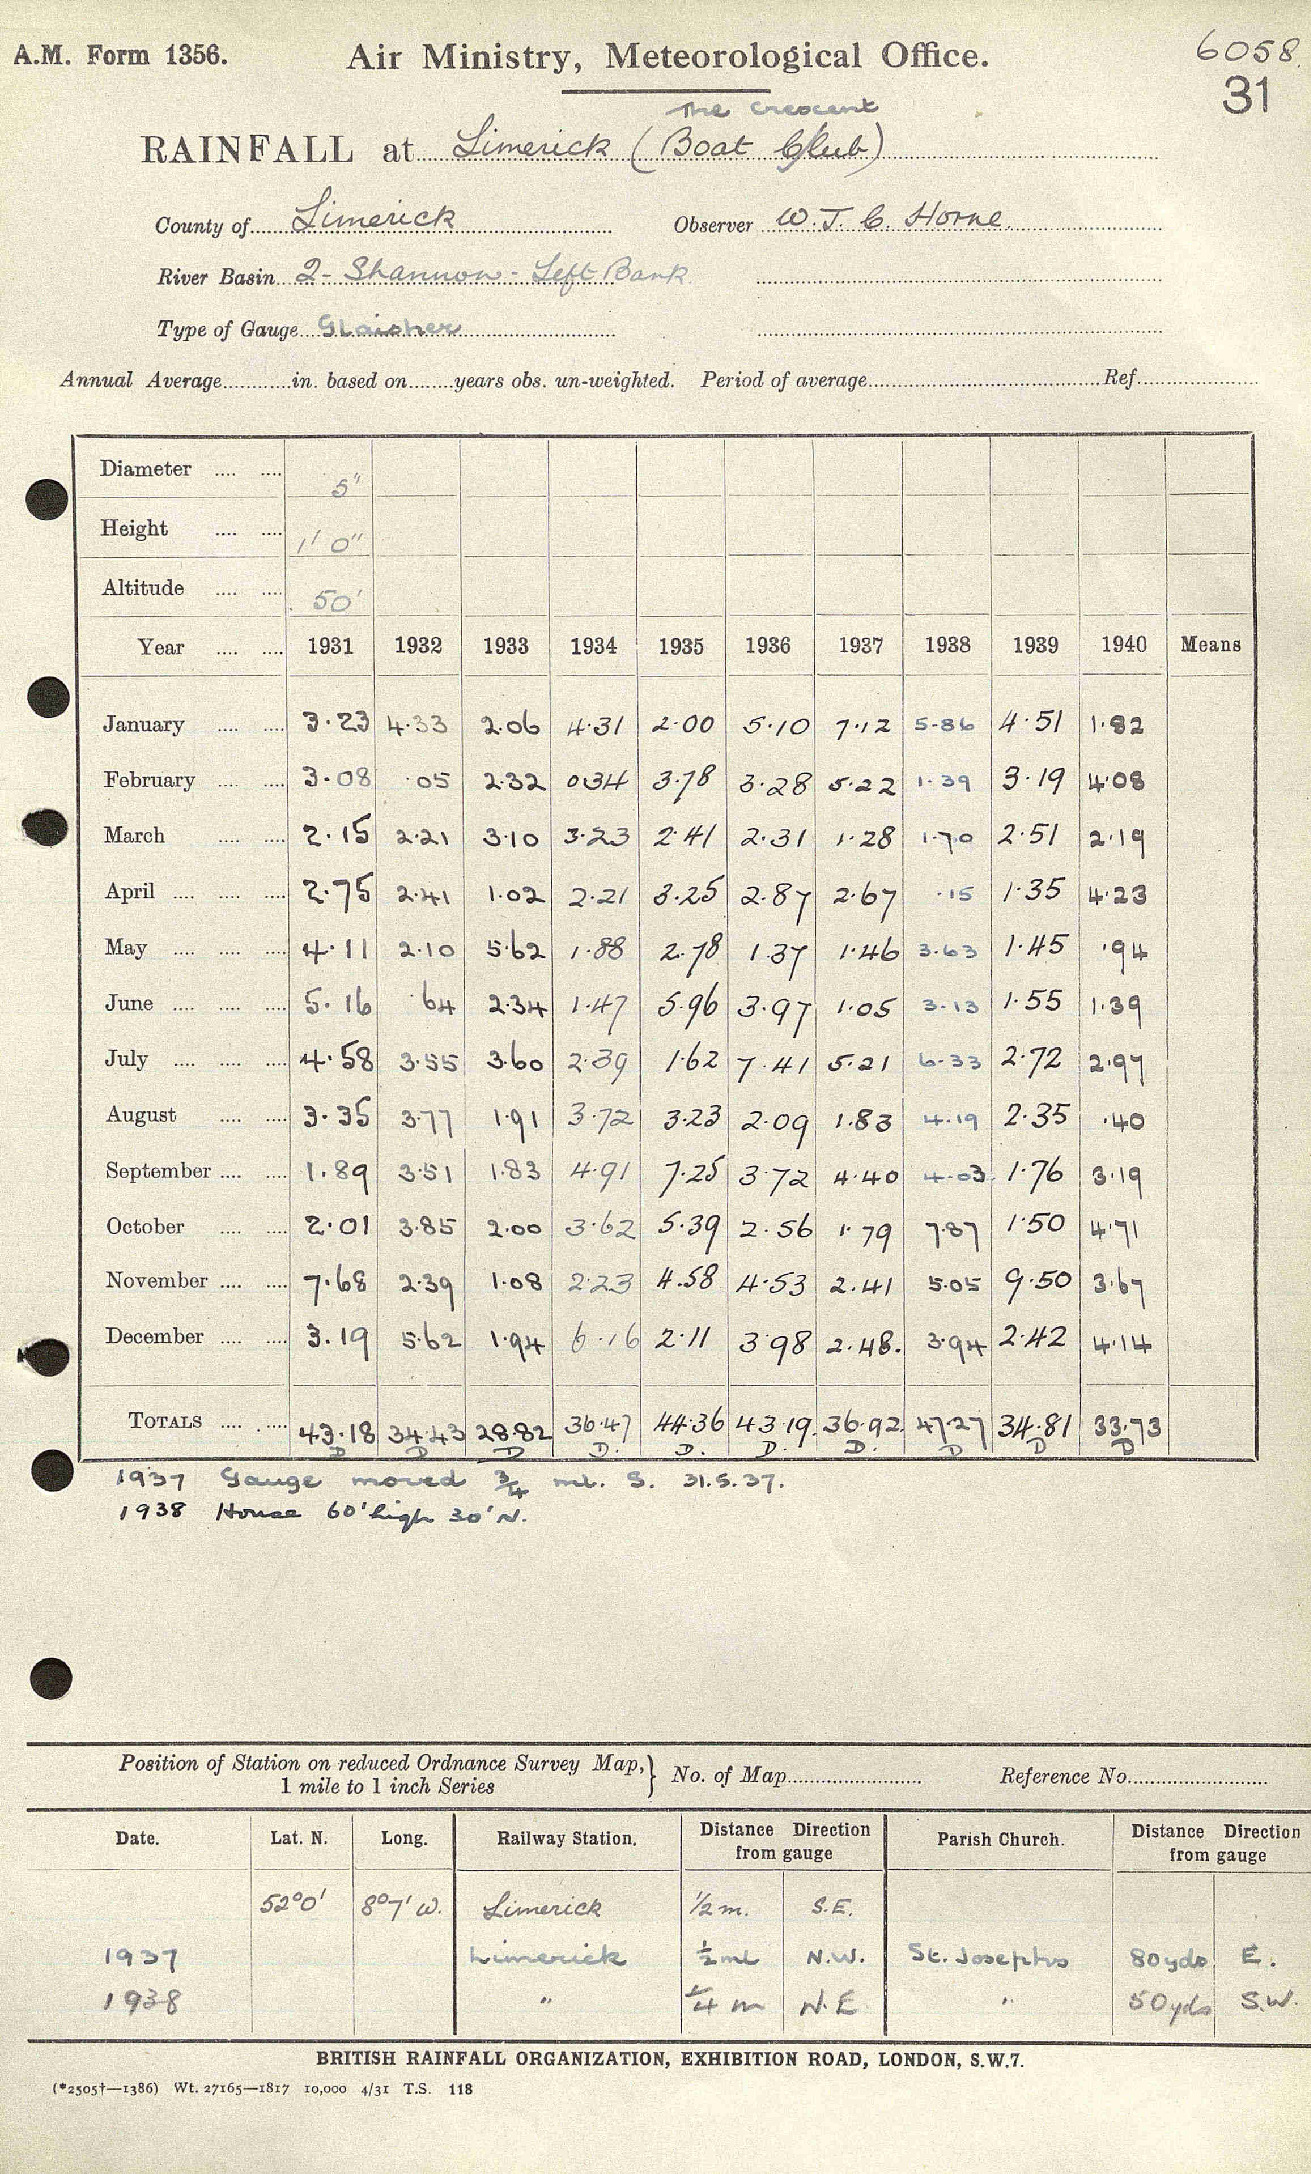 A.M. Form 1356. Air Ministry, Meteorological Office. 6058.
31
The Crescent
RAINFALL at Limerick (Boat Club)
County of Limerick Observer W. J. C. Horne.
River Basin 2 - Shannon - Left Bank
Type of Gauge Glaisher
Annual Average in. based on years obs. un-weighted. Period of average Ref.
Diameter 5"
Height 1' 0"
Altitude 50'
Year 1931 1932 1933 1934 1935 1936 1937 1938 1939 1940 Means
January 3.23 4.33 2.06 4.31 2.00 5.10 7.12 5.86 4.51 1.82
February 3.08 .05 2.32 0.34 3.78 3.28 5.22 1.39 3.19 4.08
March 2.15 2.21 3.10 3.23 2.41 2.31 1.28 1.70 2.51 2.19
April 2.75 2.41 1.02 2.21 3.25 2.87 2.67 .15 1.35 4.23
May 4.11 2.10 5.62 1.88 2.78 1.37 1.46 3.63 1.45 .94
June 5.16 .64 2.34 1.47 5.96 3.97 1.05 3.13 1.55 1.39
July 4.58 3.55 3.60 2.39 1.62 7.41 5.21 6.33 2.72 2.97
August 3.35 3.77 1.91 3.72 3.23 2.09 1.83 4.19 2.35 .40
September 1.89 3.51 1.83 4.91 7.25 3.72 4.40 4.03 1.76 3.19
October 2.01 3.85 2.00 3.62 5.39 2.56 1.79 7.87 1.50 4.71
November 7.68 2.39 1.08 2.23 4.58 4.53 2.41 5.05 9.50 3.67
December 3.19 5.62 1.94 6.16 2.11 3.98 2.48. 3.94 2.42 4.14
TOTALS 43.18 34.43 28.82 36.47 44.36 43.19. 36.92. 47.27 34.81 33.73
D D D D. D. D. D. D D D
1937 Gauge moved 3/4 ml. S. 31.5.37.
1938 House 60' high 30' N.
Position of Station on reduced Ordnance Survey Map, } No. of Map Reference No.
1 mile to 1 inch Series
Date. Lat. N. Long. Railway Station. Distance Direction Parish Church. Distance Direction
from gauge from gauge
52°0' 8°7' W. Limerick 1/2 m. S.E.
1937 Limerick 1/2 ml N.W. St. Josephs 80 yds E.
1938 " 1/4 m N.E " 50 yds S.W.
BRITISH RAINFALL ORGANIZATION, EXHIBITION ROAD, LONDON, S.W.7.
(*2505†—1386) Wt. 27165—1817 10,000 4/31 T.S. 118